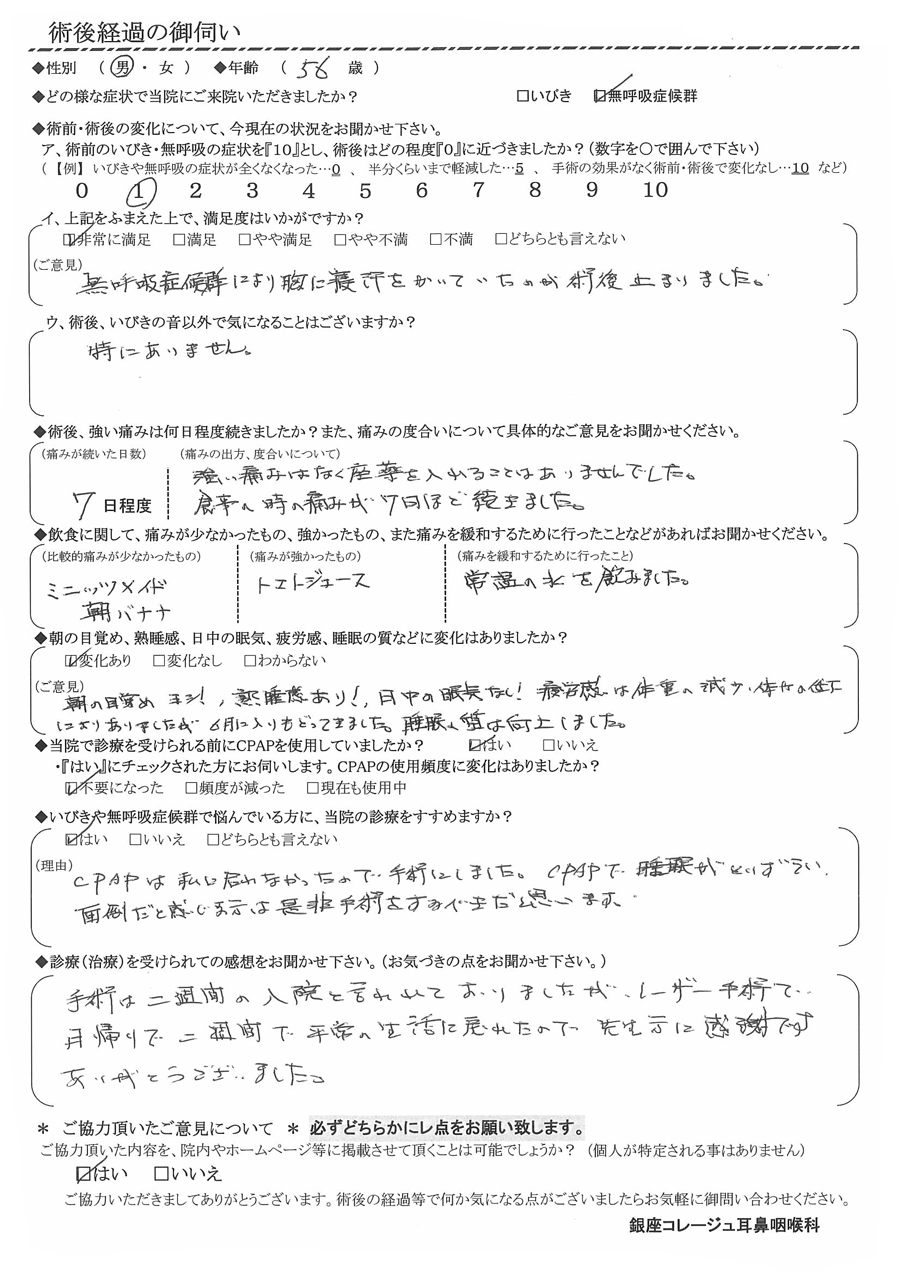 術後経過の御伺い
◆性別 （ 男 ・ 女 ） ◆年齢 （ 56 歳 ）
◆どの様な症状で当院にご来院いただきましたか？ □いびき ☑無呼吸症候群
◆術前・術後の変化について、今現在の状況をお聞かせ下さい。
ア、術前のいびき・無呼吸の症状を『10』とし、術後はどの程度『0』に近づきましたか？（数字を○で囲んで下さい）
（【例】 いびきや無呼吸の症状が全くなくなった…0 、 半分くらいまで軽減した…5 、 手術の効果がなく術前・術後で変化なし…10 など）
0 1 2 3 4 5 6 7 8 9 10
イ、上記をふまえた上で、満足度はいかがですか？
☑非常に満足 □満足 □やや満足 □やや不満 □不満 □どちらとも言えない
（ご意見）
無呼吸症候群により胸に寝汗をかいていたのが術後止まりました。
ウ、術後、いびきの音以外で気になることはございますか？
特にありません。
◆術後、強い痛みは何日程度続きましたか？また、痛みの度合いについて具体的なご意見をお聞かせください。
（痛みが続いた日数） （痛みの出方、度合いについて）
強い痛みはなく座薬を入れることはありませんでした。
7 日程度 食事の時の痛みが7日ほど続きました。
◆飲食に関して、痛みが少なかったもの、強かったもの、また痛みを緩和するために行ったことなどがあればお聞かせください。
（比較的痛みが少なかったもの） （痛みが強かったもの） （痛みを緩和するために行ったこと）
ミニッツメイド トマトジュース 常温の水を飲みました。
朝バナナ
◆朝の目覚め、熟睡感、日中の眠気、疲労感、睡眠の質などに変化はありましたか？
☑変化あり □変化なし □わからない
（ご意見）
朝の目覚め ヨシ！，熟睡感あり！，日中の眠気なし！ 疲労感は体重の減少、体力の低下
によりありましたが 6月に入りもどってきました。睡眠の質は向上しました。
◆当院で診療を受けられる前にCPAPを使用していましたか？ ☑はい □いいえ
・『はい』にチェックされた方にお伺いします。CPAPの使用頻度に変化はありましたか？
☑不要になった □頻度が減った □現在も使用中
◆いびきや無呼吸症候群で悩んでいる方に、当院の診療をすすめますか？
☑はい □いいえ □どちらとも言えない
（理由）
CPAPは私に居れなかったので手術にしました。CPAPで睡眠がとりずらい、
面倒だと感じる方は是非手術をするべきだと思います。
◆診療（治療）を受けられての感想をお聞かせ下さい。（お気づきの点をお聞かせ下さい。）
手術は二週間の入院と言われておりましたが、レーザー手術で、
日帰りで二週間で平常の生活に戻れたので、先生方に感謝です
ありがとうございました。
＊ ご協力頂いたご意見について ＊ 必ずどちらかにレ点をお願い致します。
ご協力頂いた内容を、院内やホームページ等に掲載させて頂くことは可能でしょうか？ （個人が特定される事はありません）
☑はい □いいえ
ご協力いただきましてありがとうございます。術後の経過等で何か気になる点がございましたらお気軽に御問い合わせください。
銀座コレージュ耳鼻咽喉科